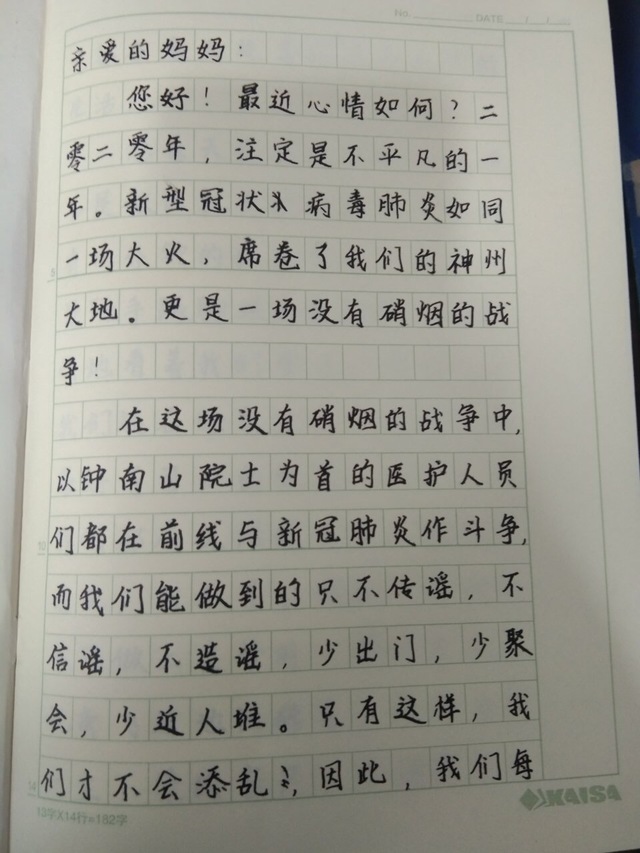 No. DATE / /
亲爱的妈妈：
您好！最近心情如何？二
零二零年，注定是不平凡的一
年。新型冠状病毒肺炎如同
一场大火，席卷了我们的神州
大地。更是一场没有硝烟的战
争！
在这场没有硝烟的战争中，
以钟南山院士为首的医护人员
们都在前线与新冠肺炎作斗争，
而我们能做到的只不传谣，不
信谣，不造谣，少出门，少聚
会，少近人堆。只有这样，我
们才不会添乱，因此，我们每
5
10
14
13字X14行=182字
KAISA